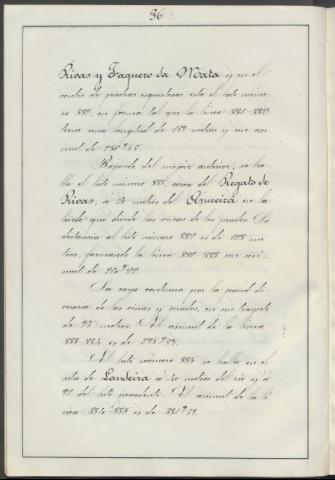 36
Rivas y Faquero da Mata y en el
centro de piedras esquistosas, está el hito núme-
ro 882, en forma tal que la línea 881-882
tiene una longitud de 157 metros y un azi-
mut de
Bajando del mojón anterior, se ha-
lla el hito número 883, cerca del Regato de
Rivas, á 24 metros del Azureira en la
linde que divide las viñas de los prados. La
distancia al hito número 882 es de 128 me-
tros, formando la línea 882-883 un azi-
mut de
La raya continua por la pared di-
visoria de las viñas y prados, en un trayecto
de 73 metros. El azimut de la línea
883-884 es de
El hito número 885 se halla en el
sitio de Landeira á 10 metros del río y á
92 del hito precedente. El azimut de la lí-
nea 884-885 es de